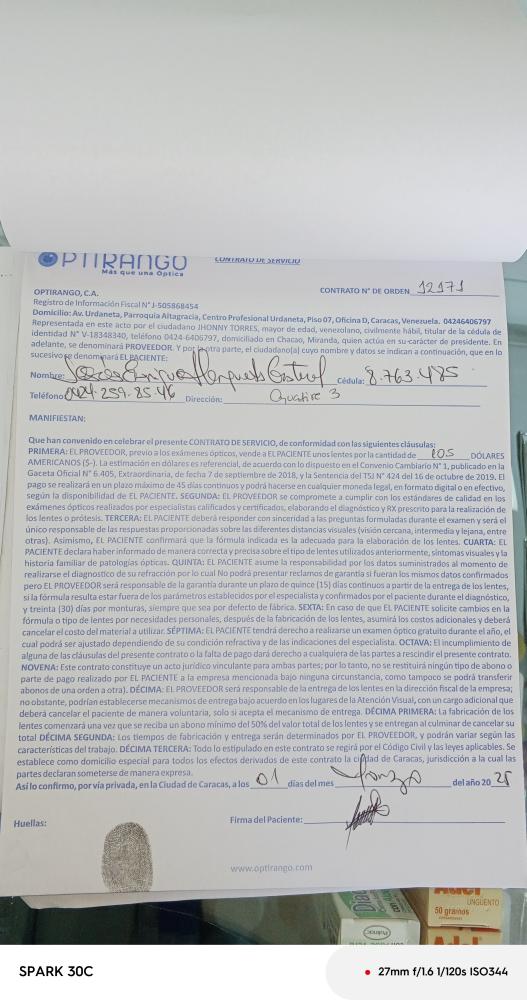 OPTIRANGO
Más que una Óptica
CONTRATO DE SERVICIO
CONTRATO N° DE ORDEN 12171
OPTIRANGO, C.A.
Registro de Información Fiscal N° J-505868454
Domicilio: Av. Urdaneta, Parroquia Altagracia, Centro Profesional Urdaneta, Piso 07, Oficina D, Caracas, Venezuela. 04246406797
Representada en este acto por el ciudadano JHONNY TORRES, mayor de edad, venezolano, civilmente hábil, titular de la cédula de
identidad N° V-18348340, teléfono 0424-6406797, domiciliado en Chacao, Miranda, quien actúa en su carácter de presidente. En
adelante, se denominará PROVEEDOR. Y por la otra parte, el ciudadano(a) cuyo nombre y datos se indican a continuación, que en lo
sucesivo se denominará EL PACIENTE:
Nombre: Cédula: 8.763.485
Teléfono: 0424.259.25.46 Dirección: Guatire 3
MANIFIESTAN:
Que han convenido en celebrar el presente CONTRATO DE SERVICIO, de conformidad con las siguientes cláusulas:
PRIMERA: EL PROVEEDOR, previo a los exámenes ópticos, vende a EL PACIENTE unos lentes por la cantidad de 105 DÓLARES
AMERICANOS ($-). La estimación en dólares es referencial, de acuerdo con lo dispuesto en el Convenio Cambiario N° 1, publicado en la
Gaceta Oficial N° 6.405, Extraordinaria, de fecha 7 de septiembre de 2018, y la Sentencia del TSJ N° 424 del 16 de octubre de 2019. El
pago se realizará en un plazo máximo de 45 días continuos y podrá hacerse en cualquier moneda legal, en formato digital o en efectivo,
según la disponibilidad de EL PACIENTE. SEGUNDA: EL PROVEEDOR se compromete a cumplir con los estándares de calidad en los
exámenes ópticos realizados por especialistas calificados y certificados, elaborando el diagnóstico y RX prescrito para la realización de
los lentes o prótesis. TERCERA: EL PACIENTE deberá responder con sinceridad a las preguntas formuladas durante el examen y será el
único responsable de las respuestas proporcionadas sobre las diferentes distancias visuales (visión cercana, intermedia y lejana, entre
otras). Asimismo, EL PACIENTE confirmará que la fórmula indicada es la adecuada para la elaboración de los lentes. CUARTA: EL
PACIENTE declara haber informado de manera correcta y precisa sobre el tipo de lentes utilizados anteriormente, síntomas visuales y la
historia familiar de patologías ópticas. QUINTA: EL PACIENTE asume la responsabilidad por los datos suministrados al momento de
realizarse el diagnostico de su refracción por lo cual No podrá presentar reclamos de garantía si fueran los mismos datos confirmados
pero EL PROVEEDOR será responsable de la garantía durante un plazo de quince (15) días continuos a partir de la entrega de los lentes,
si la fórmula resulta estar fuera de los parámetros establecidos por el especialista y confirmados por el paciente durante el diagnóstico,
y treinta (30) días por monturas, siempre que sea por defecto de fábrica. SEXTA: En caso de que EL PACIENTE solicite cambios en la
fórmula o tipo de lentes por necesidades personales, después de la fabricación de los lentes, asumirá los costos adicionales y deberá
cancelar el costo del material a utilizar. SÉPTIMA: EL PACIENTE tendrá derecho a realizarse un examen óptico gratuito durante el año, el
cual podrá ser ajustado dependiendo de su condición refractiva y de las indicaciones del especialista. OCTAVA: El incumplimiento de
alguna de las cláusulas del presente contrato o la falta de pago dará derecho a cualquiera de las partes a rescindir el presente contrato.
NOVENA: Este contrato constituye un acto jurídico vinculante para ambas partes; por lo tanto, no se restituirá ningún tipo de abono o
parte de pago realizado por EL PACIENTE a la empresa mencionada bajo ninguna circunstancia, como tampoco se podrá transferir
abonos de una orden a otra). DÉCIMA: EL PROVEEDOR será responsable de la entrega de los lentes en la dirección fiscal de la empresa;
no obstante, podrían establecerse mecanismos de entrega bajo acuerdo en los lugares de la Atención Visual, con un cargo adicional que
deberá cancelar el paciente de manera voluntaria, solo si acepta el mecanismo de entrega. DÉCIMA PRIMERA: La fabricación de los
lentes comenzará una vez que se reciba un abono mínimo del 50% del valor total de los lentes y se entregan al culminar de cancelar su
total DÉCIMA SEGUNDA: Los tiempos de fabricación y entrega serán determinados por EL PROVEEDOR, y podrán variar según las
características del trabajo. DÉCIMA TERCERA: Todo lo estipulado en este contrato se regirá por el Código Civil y las leyes aplicables. Se
establece como domicilio especial para todos los efectos derivados de este contrato la ciudad de Caracas, jurisdicción a la cual las
partes declaran someterse de manera expresa.
Así lo confirmo, por vía privada, en la Ciudad de Caracas, a los 01 días del mes Marzo del año 20 25
Huellas:
Firma del Paciente:
www.optirango.com
UNGUENTO
50 gramos
SPARK 30C
27mm f/1.6 1/120s ISO344